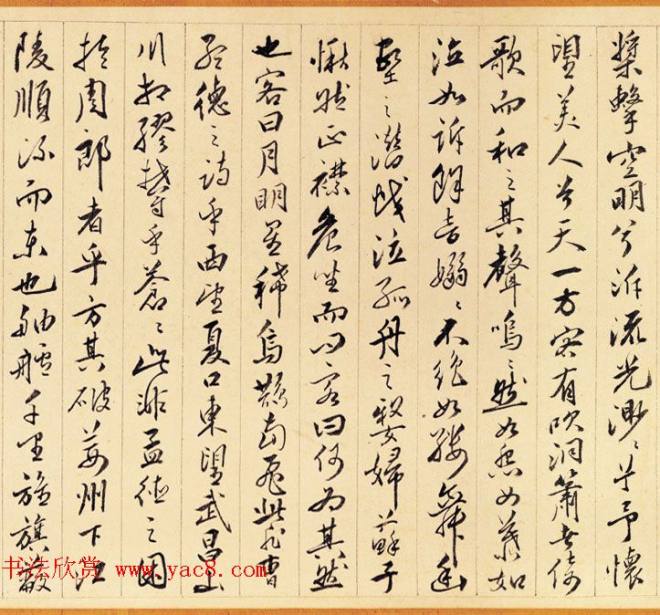 槳擊空明兮泝流光渺渺兮予懷
望美人兮天一方客有吹洞簫者倚
歌而和之其聲嗚嗚然如怨如慕如
泣如訴餘音嫋嫋不絕如縷舞幽
壑之潛蛟泣孤舟之嫠婦蘇子
愀然正襟危坐而問客曰何為其然
也客曰月明星稀烏鵲南飛此非曹
孟德之詩乎西望夏口東望武昌山
川相繆鬱乎蒼蒼此非孟德之困
於周郎者乎方其破荊州下江
陵順流而東也舳艫千里旌旗蔽
书法欣赏 www.yac8.com